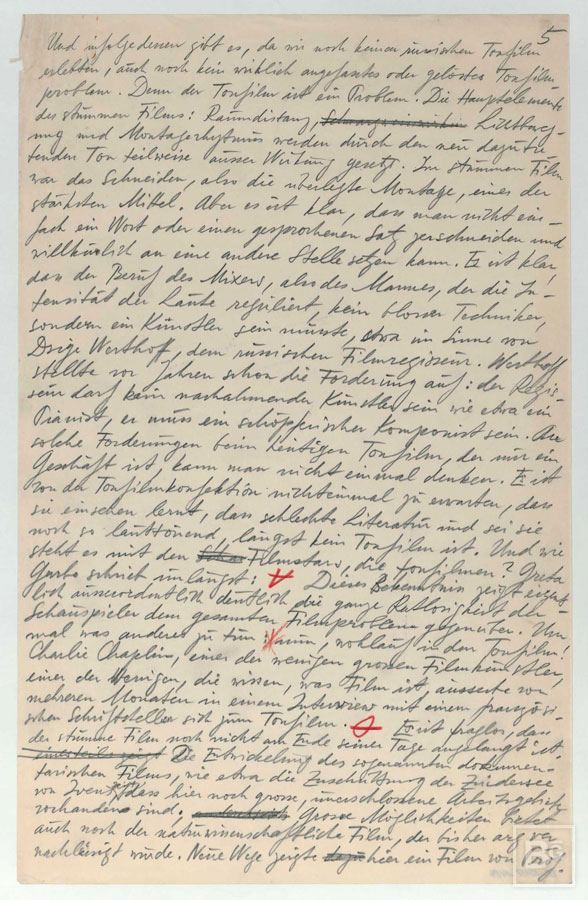 5
Und infolgedessen gibt es, da wir noch keinen russischen Tonfilm
erlebten, auch noch kein wirklich angefasstes oder gelöstes Tonfilm
problem. Denn der Tonfilm ist ein Problem. Die Hauptelemente
des stummen Films: Raumdistanz, Lichtbeweg-
ung und Montagerhytmus werden durch den neu dazutre
tenden Ton teilweise ausser Wirkung gesetzt. Im stummen Film
war das Schneiden, also die überlegte Montage, eines der
stärksten Mittel. Aber es ist klar, dass man nicht ein-
fach ein Wort oder einen gesprochenen Satz zerschneiden und
willkürlich an eine andere Stelle setzen kann. Es ist klar,
dass der Beruf des Mixers, also des Mannes, der die In-
tensität der Laute reguliert, kein blosser Techniker,
sondern ein Künstler sein müsste, etwa im Sinne von
Dsige Werthoff, dem russischen Filmregisseur. Werthoff
stellte vor Jahren schon die Forderung auf: der Regis
seur darf kein nachahmender Künstler sein wie etwa ein
Pianist, er muss ein schöpferischer Komponist sein. An
solche Forderungen beim heutigen Tonfilm, der nur ein
Geschäft ist, kann man nicht einmal denken. Es ist
von der Tonfilmkonfektion nichteinmal zu erwarten, dass
sie einsehen lernt, dass schlechte Literatur und sei sie
noch so lauttönend, längst kein Tonfilm ist. Und wie
steht es mit den Filmstars, die tonfilmen? Greta
Garbo schrieb unlängst: Dieses Bekenntnis zeigt eigent
lich ausserordentlich deutlich die ganze Ratlosigkeit der
Schauspieler dem gesamten Filmproblem gegenüber. Um
mal was anderes zu tun, wohlauf in den Tonfilm!
Charlie Chaplin, einer der wenigen grossen Filmkünstler,
einer der Wenigen, die wissen, was Film ist, äusserte vor
mehreren Monaten in einem Interwiew mit einem französi-
schen Schriftsteller sich zum Tonfilm. Es ist fraglos, dass
der stumme Film noch nicht am Ende seiner Tage angelangt ist.
Die Entwickelung des sogenannten dokumen-
tarischen Films, wie etwa die Zuschüttung der Zuidersee
von Ivens, dass hier noch grosse, unerschlossene Arbeitsgebiete
vorhanden sind. Grosse Möglichkeiten bietet
auch noch der naturwissenschaftliche Film, der bisher arg ver
nachlässigt wurde. Neue Wege zeigte hier ein Film von Prof.